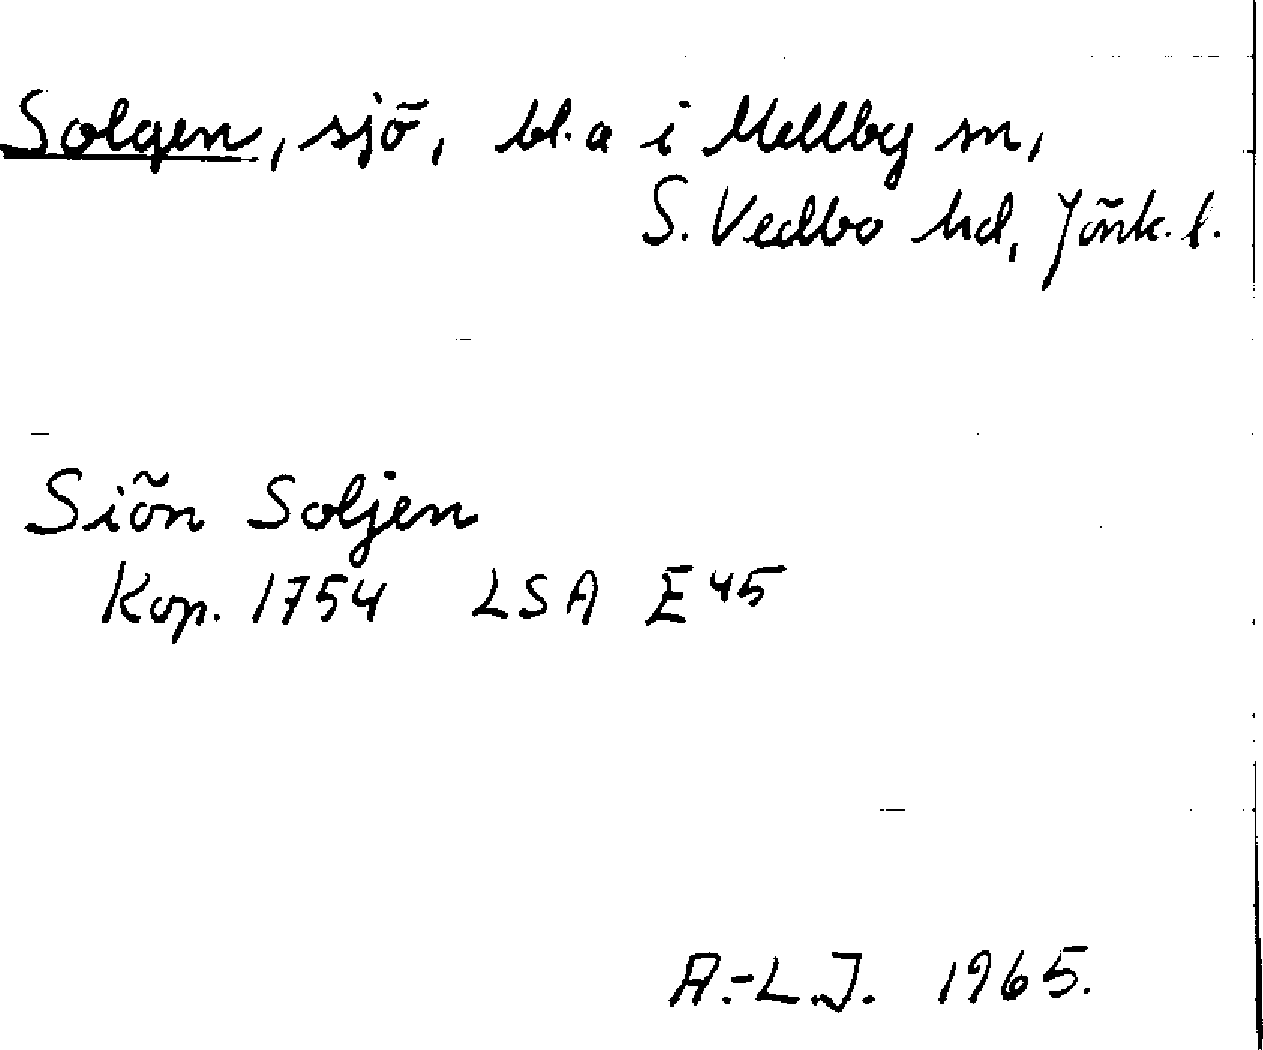 Solgen, sjö, bl.a i Mellby sn,
S. Vedbo hd, Jönk. l.
Siön Soljen
Kop. 1754 LSA E 45
A.-L.J. 1965.